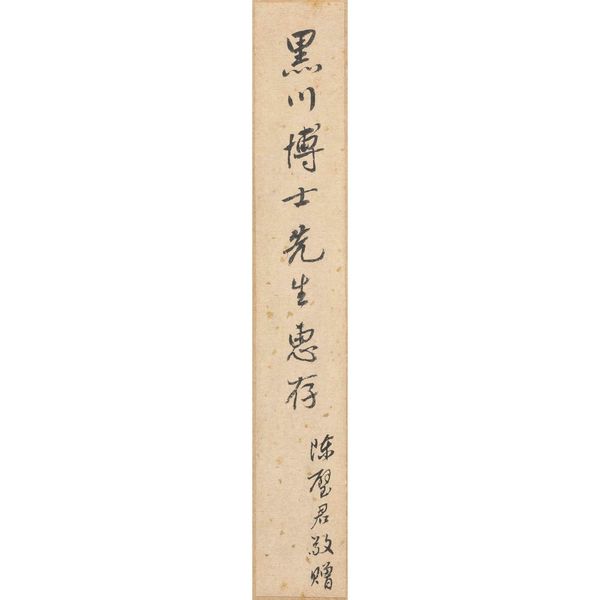 黒川博士先生惠存
陳璧君敬贈